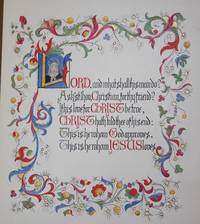 LORD, and what shall this man do?
Askest thou, Christian, for thy friend?
If his love for CHRIST be true,
CHRIST hath told thee of his end:
This is he whom God approves,
This is he whom JESUS loves.